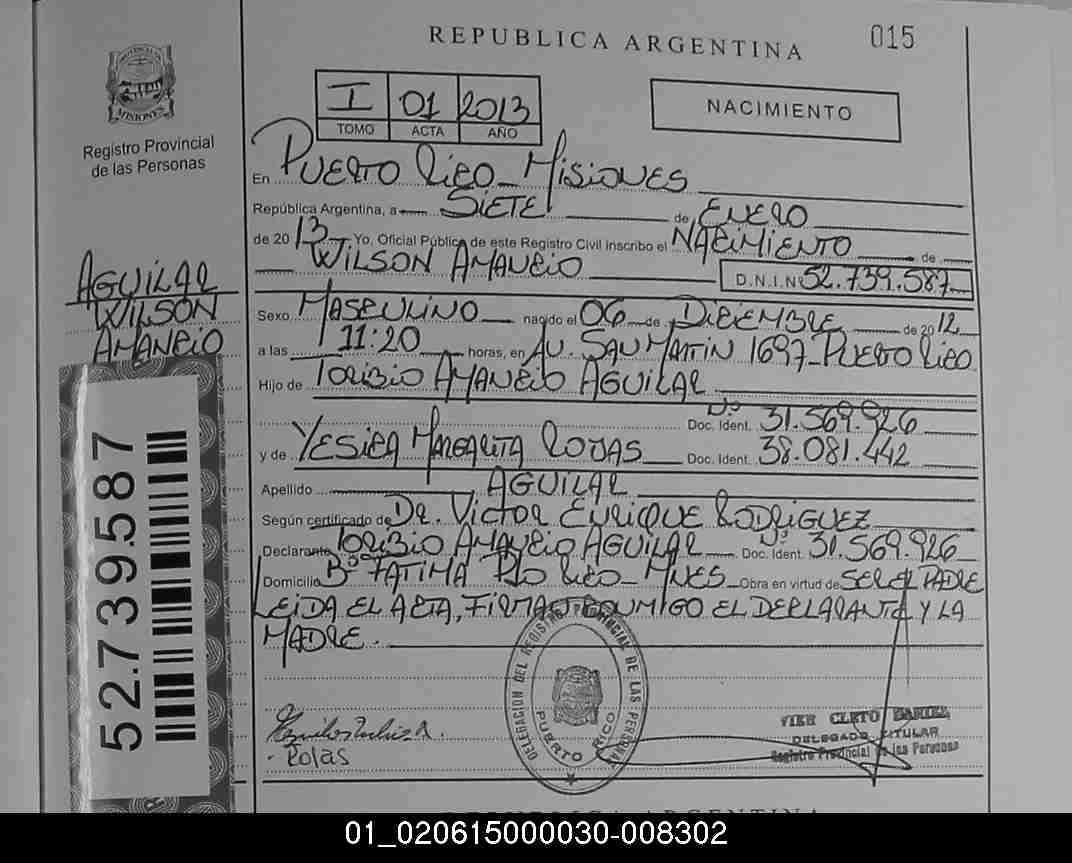 REPUBLICA ARGENTINA
015
PROVINCIA DE MISIONES
Registro Provincial
de las Personas
I 01 2013
TOMO ACTA AÑO
NACIMIENTO
En PUERTO RICO - MISIONES
República Argentina, a SIETE de ENERO
de 2013 Yo, Oficial Público de este Registro Civil inscribo el NACIMIENTO de
WILSON AMANCIO D.N.I.Nº 52.739.587
AGUILAR
WILSON
AMANCIO
Sexo MASCULINO nacido el 06 de DICIEMBRE de 2012
a las 11:20 horas, en AV. SAN MARTIN 1697 - PUERTO RICO
Hijo de TORIBIO AMANCIO AGUILAR
Doc. Ident. Nº 31.569.926
y de YESICA MARGARITA ROJAS Doc. Ident. 38.081.442
Apellido AGUILAR
Según certificado de DR. VICTOR ENRIQUE RODRIGUEZ
Declarante TORIBIO AMANCIO AGUILAR Doc. Ident. Nº 31.569.926
Domicilio Bº FATIMA PTO RICO - MNES Obra en virtud de SER EL PADRE
LEIDA EL ACTA, FIRMA CONMIGO EL DECLARANTE Y LA
MADRE.
52.739.587
DELEGACION DEL REGISTRO PROVINCIAL DE LAS PERSONAS
PUERTO RICO
Rojas
VIER CLETO DANIEL
DELEGADO TITULAR
Registro Provincial de las Personas
REPUBLICA ARGENTINA
01_020615000030-008302